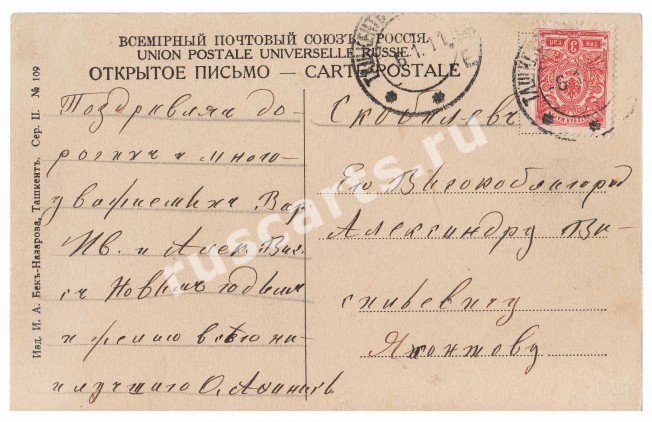 ВСЕМІРНЫЙ ПОЧТОВЫЙ СОЮЗЪ. РОССІЯ.
UNION POSTALE UNIVERSELLE. RUSSIE.
ОТКРЫТОЕ ПИСЬМО — CARTE POSTALE
Изд. И. А. Бекъ-Назарова, Ташкентъ. Сер. II. № 109
Поздравляя до-
рогихъ и много-
уважаемыхъ Вар.
Ив. и Алек. Вас.
съ Новымъ годомъ
и желаю всего на-
илучшаго О.
Скобелевъ
Его Высокоблагород
Александру Ва-
сильевичу
Яхонтову
ТАШКЕНТЪ
6.1.11
Е
ТАШКЕН
-6.1
3
ruscarts.ru